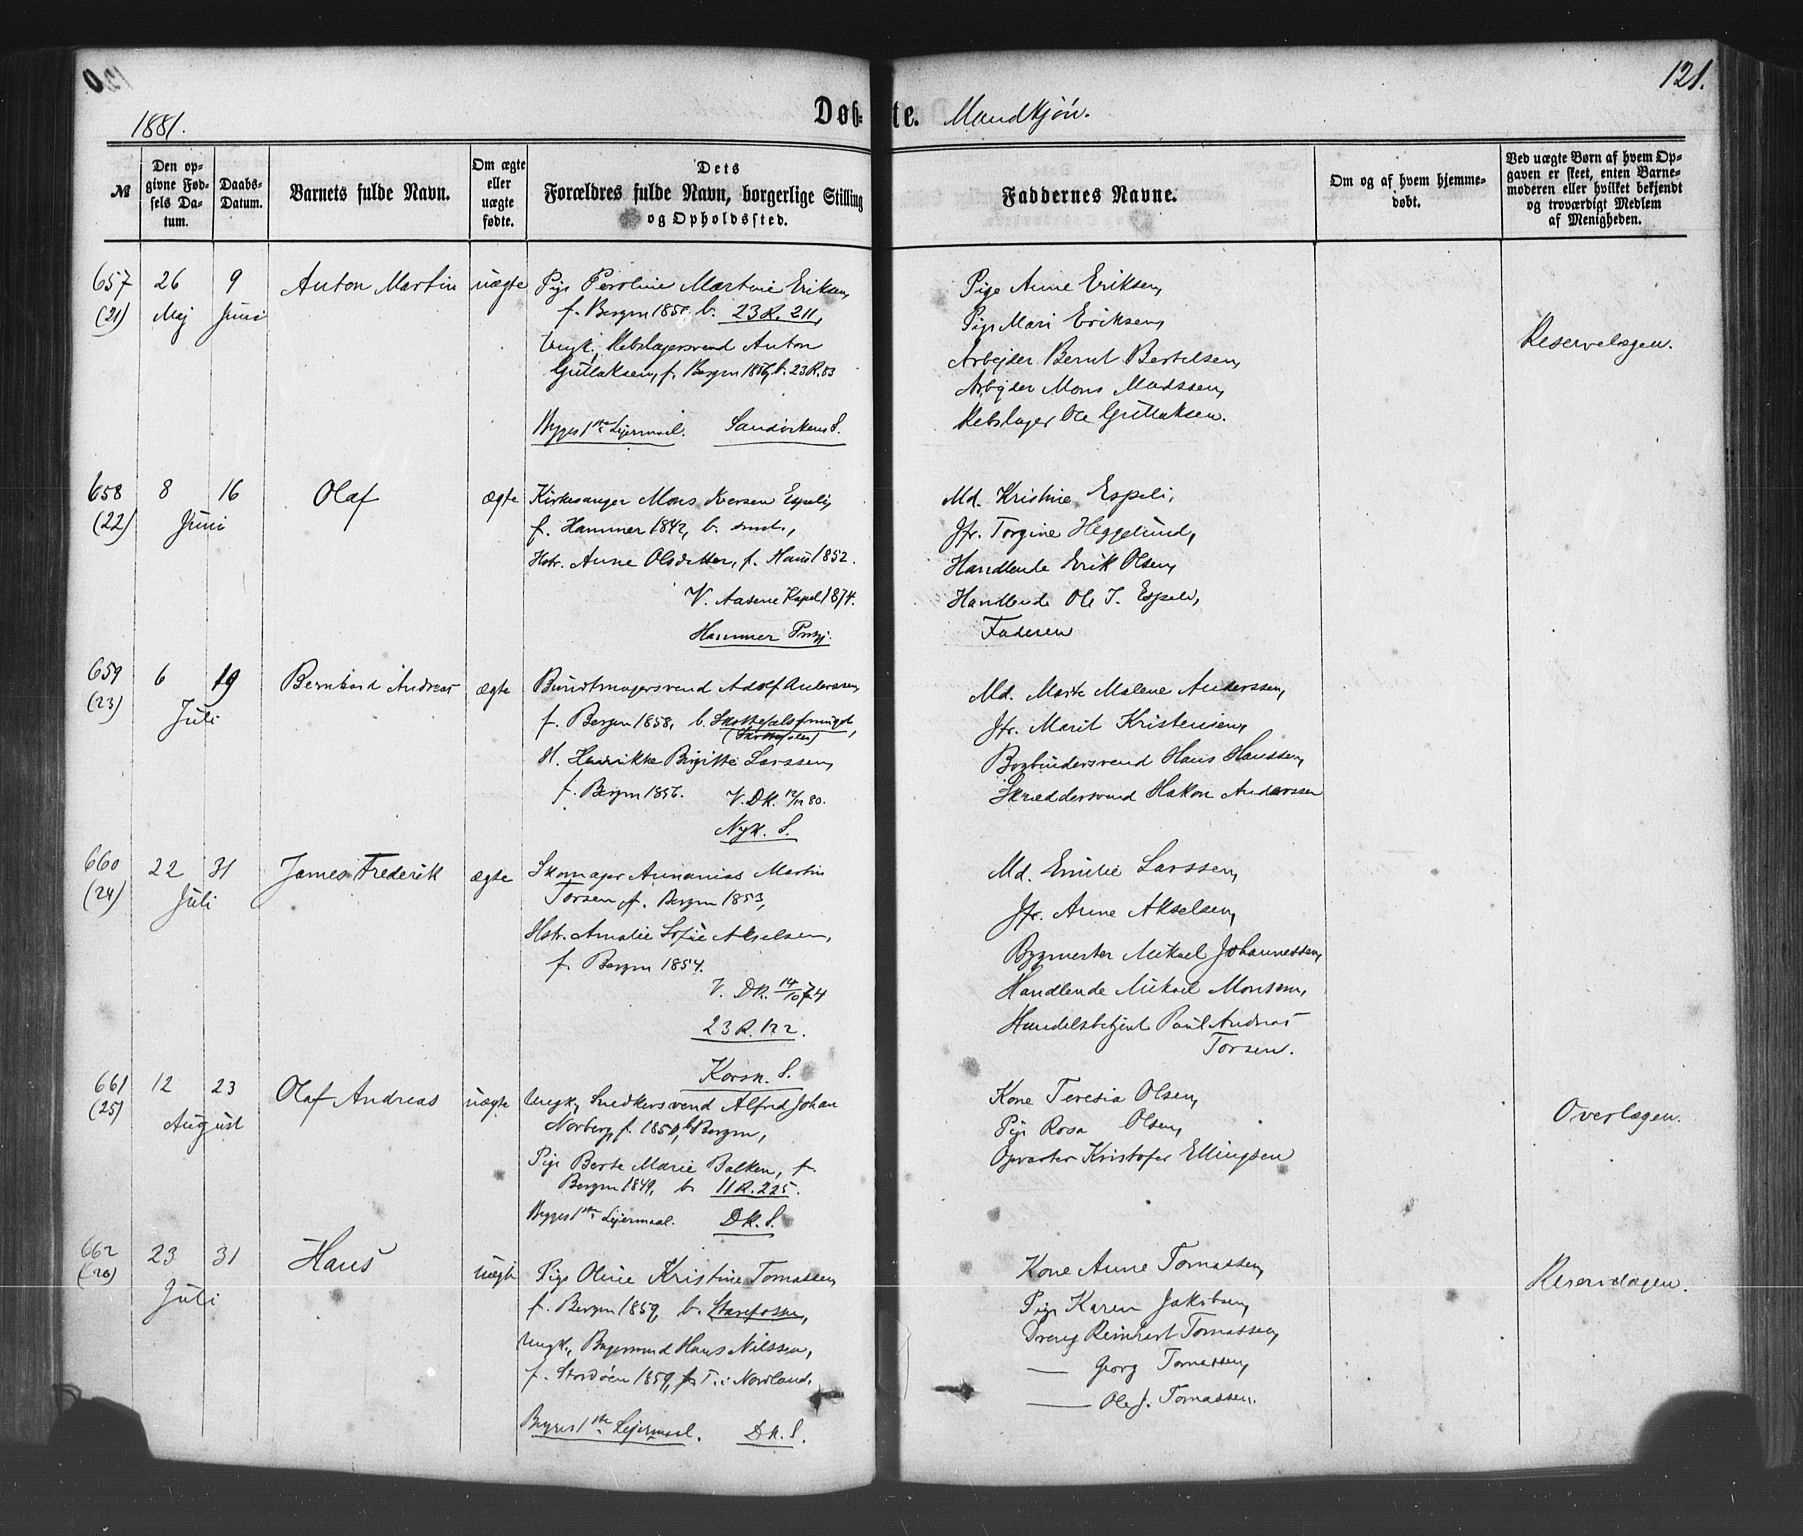 120
121.
1881.
Døb-te. Mandkjøn.
№
Den op-
givne Fød-
sels Da-
tum.
Daabs-
Datum.
Barnets fulde Navn.
Om ægte
eller
uægte
fødte.
Dets
Forældres fulde Navn, borgerlige Stilling
og Opholdssted.
Faddernes Navne.
Om og af hvem hjemme-
døbt.
Ved uægte Børn af hvem Op-
gaven er skeet, enten Barne-
moderen eller hvilket bekjendt
og troværdigt Medlem
af Menigheden.
657 26 9 Anton Martin uægte
(21) Maj Juni
Pige Peroline Martine Eriksen,
f. Bergen b. 23 R. 211,
Ungk. Rebslagersvend Anton
Gutlaksen, f. Bergen 1856, b. 23 R. 83
Begges 1ste Lejermaal. Sandvikens S.
Pige Anne Eriksen,
Pige Mari Eriksen,
Arbejder Bernt Bertelsen,
Arbejder Mons Madssen,
Rebslager Ole Gutlaksen.
Reservelægen.
658 8 16 Olaf ægte
(22) Juni
Kirkesanger Mons Iversen Espeli,
f. Hammer 1842, b. smst.,
Hstr. Anne Olsdatter, f. Haus 1852.
V. Aasene Kapel 1874.
Hammer Prgj.
Md. Kristine Espeli,
Jfr. Torgine Heggelund,
Handlende Erik Olsen,
Handlende Ole I. Espeli,
Faderen
659 6 19 Bernhard Andreas ægte
(23) Juli
Buntmagersvend Adolf Anderssen,
f. Bergen 1858, b.
H. Henrikke Birgitte Larssen,
f. Bergen 1856. V. DK. 12/12 80.
Nyk. S.
Md. Marte Malene Anderssen,
Jfr. Marit Kristensen,
Bogbindersvend Hans Hanssen,
Skræddersvend Hakon Anderssen
660 22 31 James Frederik ægte
(24) Juli
Skomager Annanias Martin
Torsen f. Bergen 1853,
Hstr. Amalie Sofie Akselsen,
f. Bergen 1854.
V. DK. 14/10 74
23 R. 122.
Korsk. S.
Md. Emilie Larssen,
Jfr. Anne Akselsen,
Bygmester Mikael Johannessen,
Handlende Mikael Monsen,
Handelsbetjent Paul Andreas
Torsen.
661 12 23 Olaf Andreas uægte
(25) August
Ungk. Snedkersvend Alfred Johan
Norberg, f. 1850, b. Bergen,
Pige Berte Marie Balken, f.
Bergen 1849, b. 11 R. 225.
Begges 1ste Lejermaal. DK. S.
Kone Teresia Olsen,
Pige Rosa Olsen,
Opvarter Kristofer Ellingsen
Overlægen.
662 23 31 Hans uægte
(26) Juli
Pige Oline Kristine Tomassen,
f. Bergen 1859, b.
Ungk. Bagersvend Hans Nilssen,
f. Stordøen 1859, f. T. i Nordland.
Begges 1ste Lejermaal. DK. S.
Kone Anne Tomassen,
Pige Karen Jakobsen,
Dreng Reinhart Tomassen,
— Georg Tomassen,
— Ole J. Tomassen.
Reservelægen.